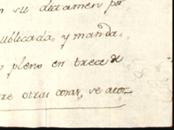 n su dictamen por
ublicada, y manda
pleno en trece de
re otras cosas, se acor